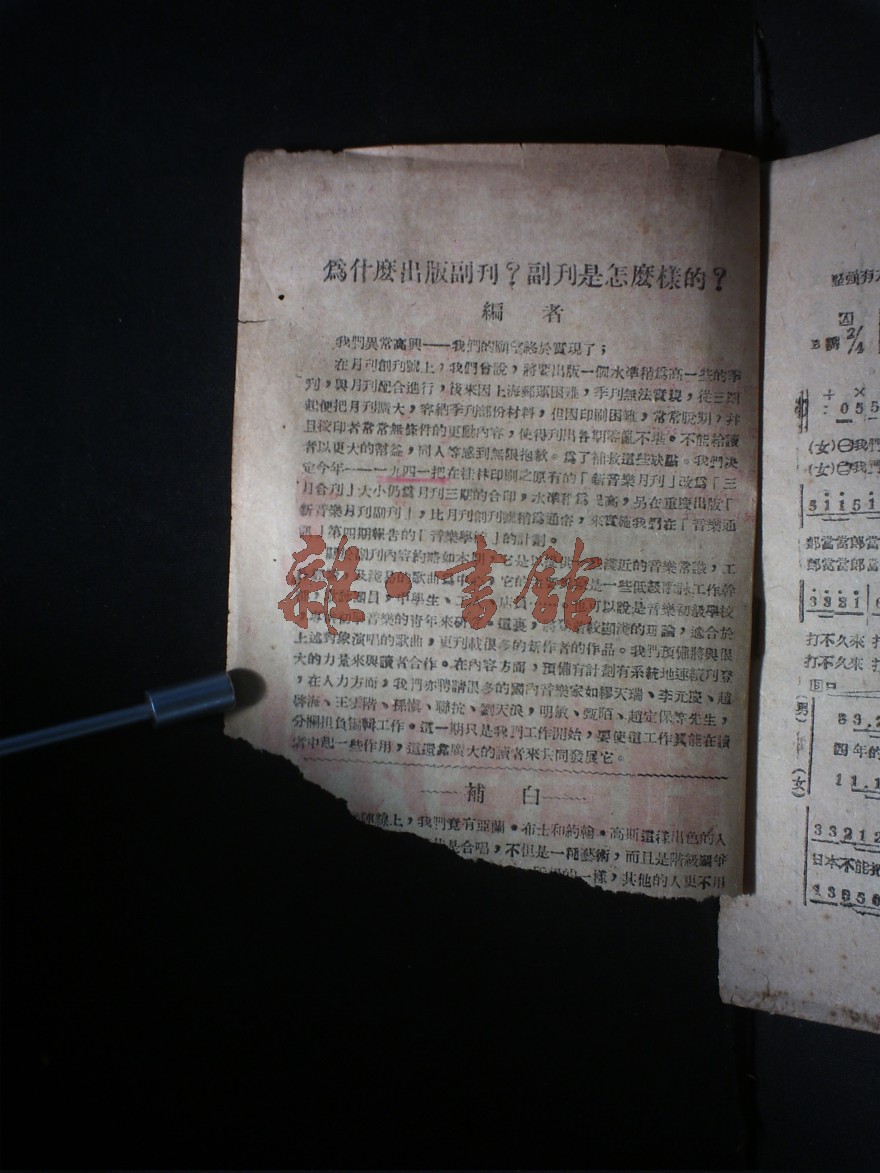 為什麼出版副刊？副刊是怎麼樣的？
編者
我們異常高興——我們的願望終於實現了；
在月刊創刊號上，我們曾說，將要出版一個水準稍為高一些的季
刊，與月刊配合進行，後來因上海郵寄困難，季刊無法實現，從三期
起便把月刊擴大，容納季刊部份材料，但因印刷困難，常常脫期，并
且按印者常常無條件的更動內容，使得刊出各期零亂不堪。不能給讀
者以更大的幫益，同人等感到無限抱歉。為了補救這些缺點。我們决
定今年——一九四一把在桂林印刷之原有的「新音樂月刊」改為「三
月合刊」大小仍為月刊三期的合印，水準稍為提高，另在重慶出版「
新音樂月刊副刊」，比月刊創刊號稍為通俗，來實施我們在「音樂通
」第四期報告的「音樂學校」的計劃。
副刊內容約略如本期，它是淺近的音樂常識，工
淺易的歌曲為中心，它的是一些低級工作幹
員，中學生、可以說是音樂初級學校
音樂的青年來研這裏，將理論，適合於
上述對象演唱的歌曲，更刊載很多的新作者的作品。我們預備將與很
大的力量來與讀者合作。在內容方面，預備有計劃有系統地連續刊登
，在人力方面，我們亦聘請很多的國內音樂家如繆天瑞、李元慶、趙
海、王雲階、孫慎、聯抗、劉天浪，明敏、甄陌、趙定保等先生，
分欄担負編輯工作。這一期只是我們工作開始，要使這工作真能在讀
者中起一些作用，這還靠廣大的讀者來共同發展它。
補白
陣線上，我們竟有亞蘭·布士和約翰·高斯這樣出色的人
是合唱，不但是一種藝術，而且是階級鬭爭
的一樣，其他的人更不用
雜·書館
堅强有
A
B調 2/4
: 0 5 5
(女)㊀我們
(女)㊁我
5 1 1 5 1
郎當當郎當
郎當當郎當
3 3 3 1
打不久來 打
打不久來 打
B
(男)
3 3.2
四年的
(女)
1 1.1
3 3 2 1 2
日本不能把
1 3 5 5 6